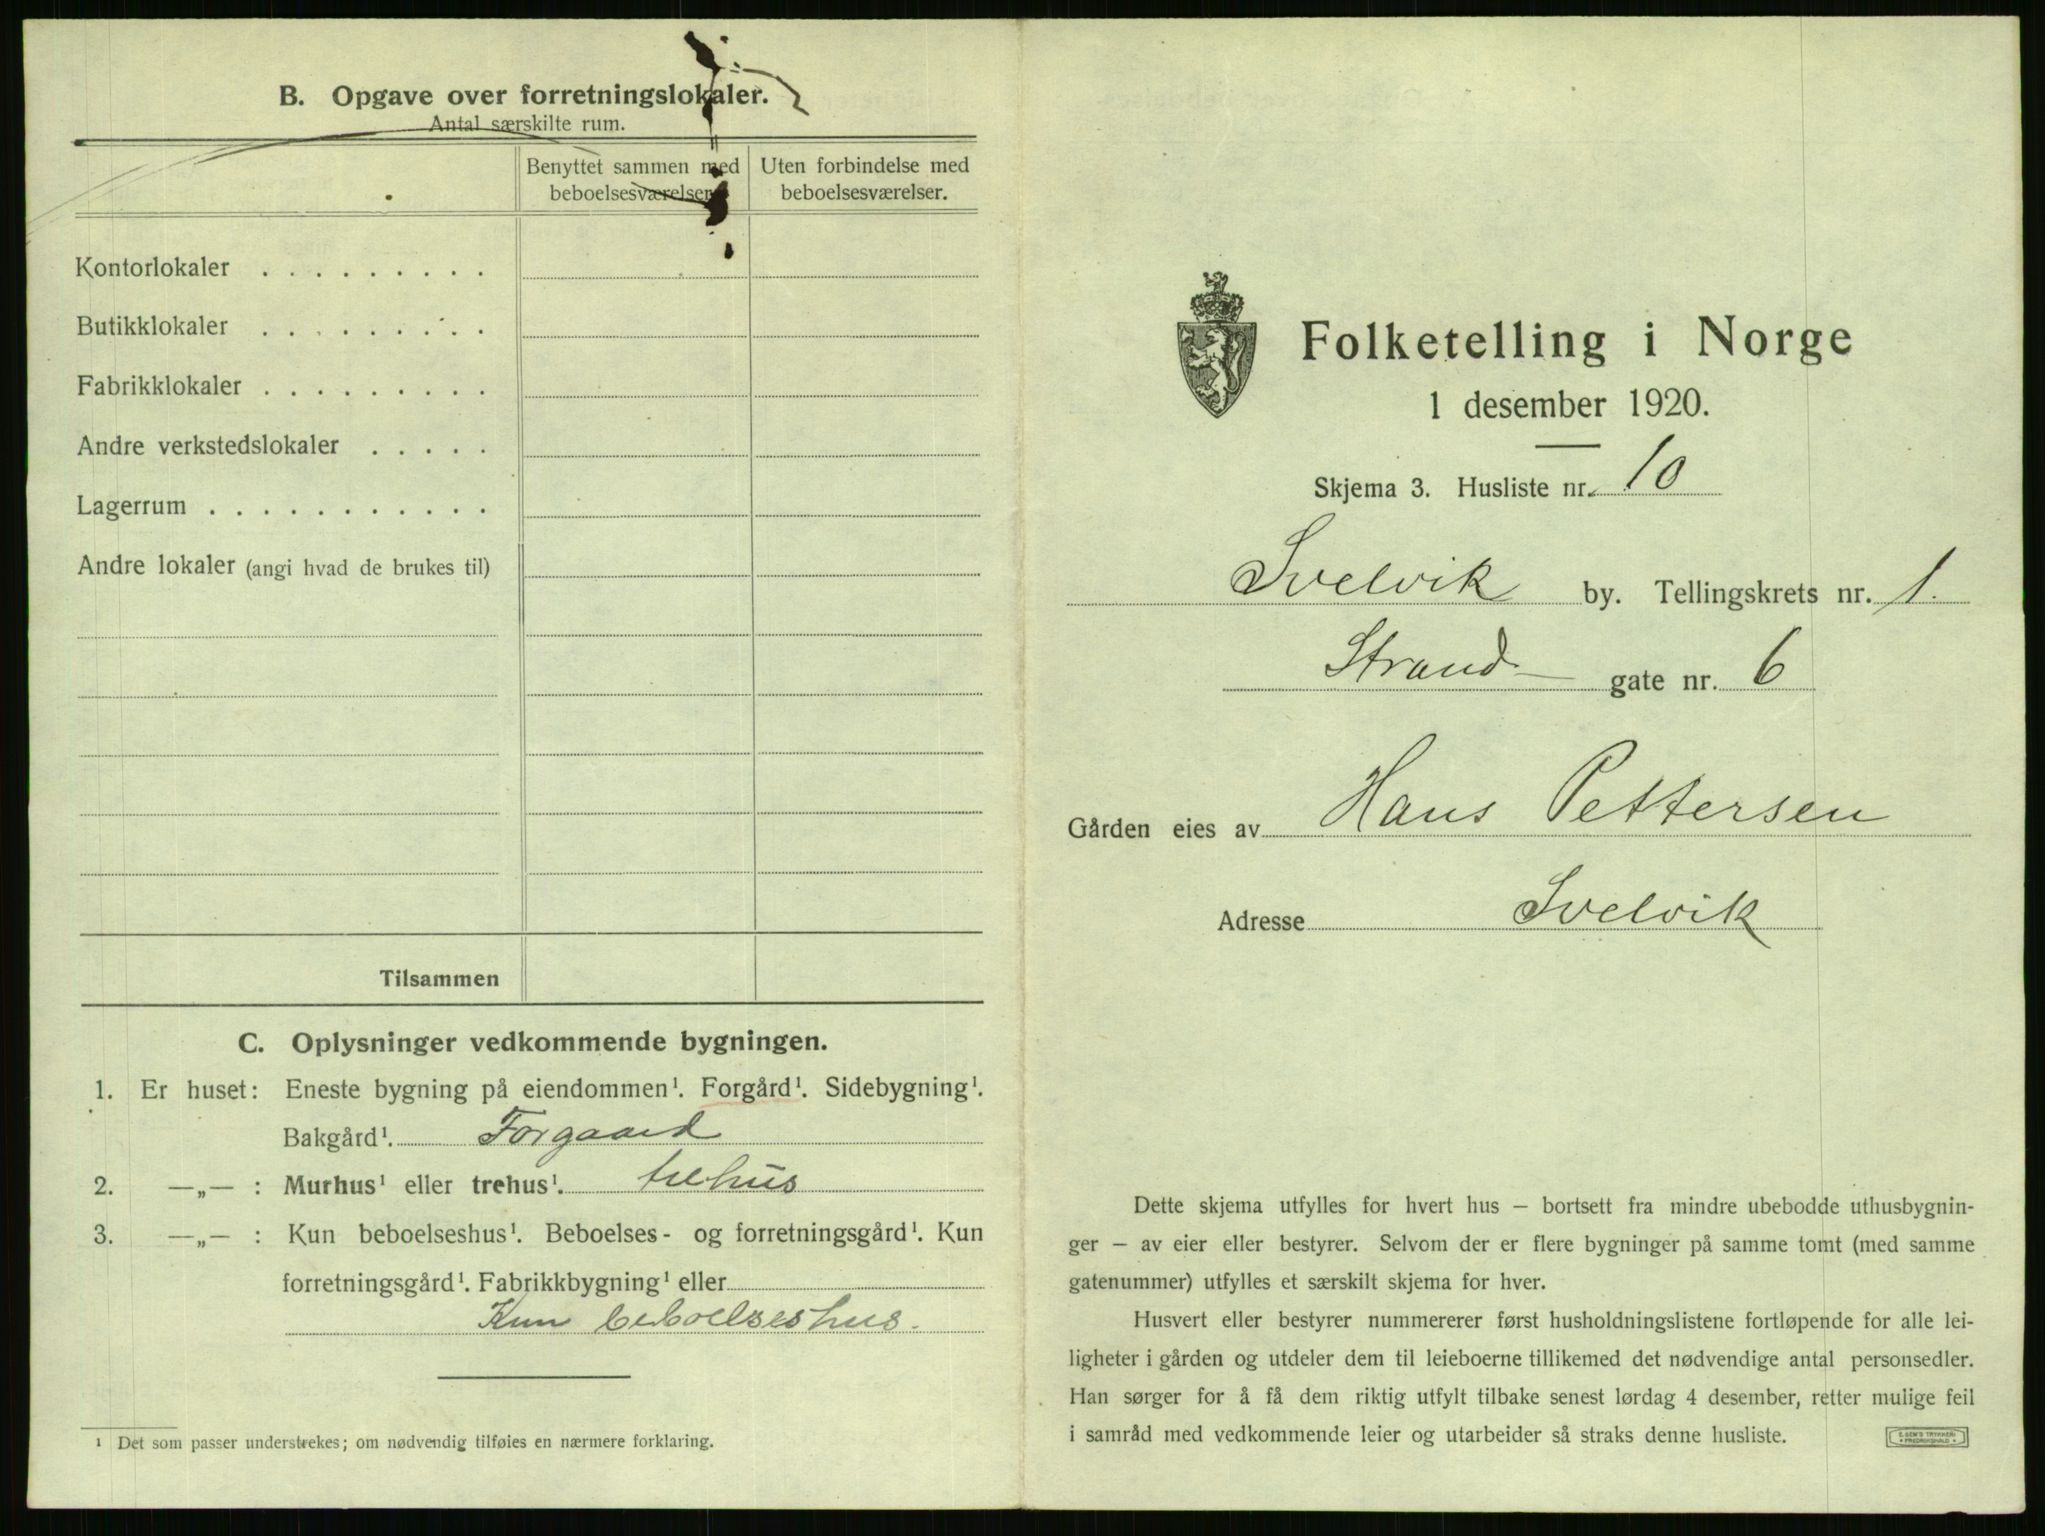 B. Opgave over forretningslokaler.
Antal særskilte rum.
Benyttet sammen med beboelsesværelser.
Uten forbindelse med beboelsesværelser.
Kontorlokaler . . . . . . . . .
Butikklokaler . . . . . . . . .
Fabrikklokaler . . . . . . . . .
Andre verkstedslokaler . . . . .
Lagerrum . . . . . . . . . . .
Andre lokaler (angi hvad de brukes til)
Tilsammen
C. Oplysninger vedkommende bygningen.
1. Er huset: Eneste bygning på eiendommen¹. Forgård¹. Sidebygning¹.
Bakgård¹. Forgaard
2. —„— : Murhus¹ eller trehus¹. trehus
3. —„— : Kun beboelseshus¹. Beboelses- og forretningsgård¹. Kun
forretningsgård¹. Fabrikkbygning¹ eller
Kun beboelseshus.
¹ Det som passer understrekes; om nødvendig tilføies en nærmere forklaring.
Folketelling i Norge
1 desember 1920.
Skjema 3. Husliste nr. 10
Svelvik by. Tellingskrets nr. 1.
Strand- gate nr. 6
Gården eies av Hans Pettersen
Adresse Svelvik
Dette skjema utfylles for hvert hus – bortsett fra mindre ubebodde uthusbygnin-
ger – av eier eller bestyrer. Selvom der er flere bygninger på samme tomt (med samme
gatenummer) utfylles et særskilt skjema for hver.
Husvert eller bestyrer nummererer først husholdningslistene fortløpende for alle lei-
ligheter i gården og utdeler dem til leieboerne tillikemed det nødvendige antal personsedler.
Han sørger for å få dem riktig utfylt tilbake senest lørdag 4 desember, retter mulige feil
i samråd med vedkommende leier og utarbeider så straks denne husliste.